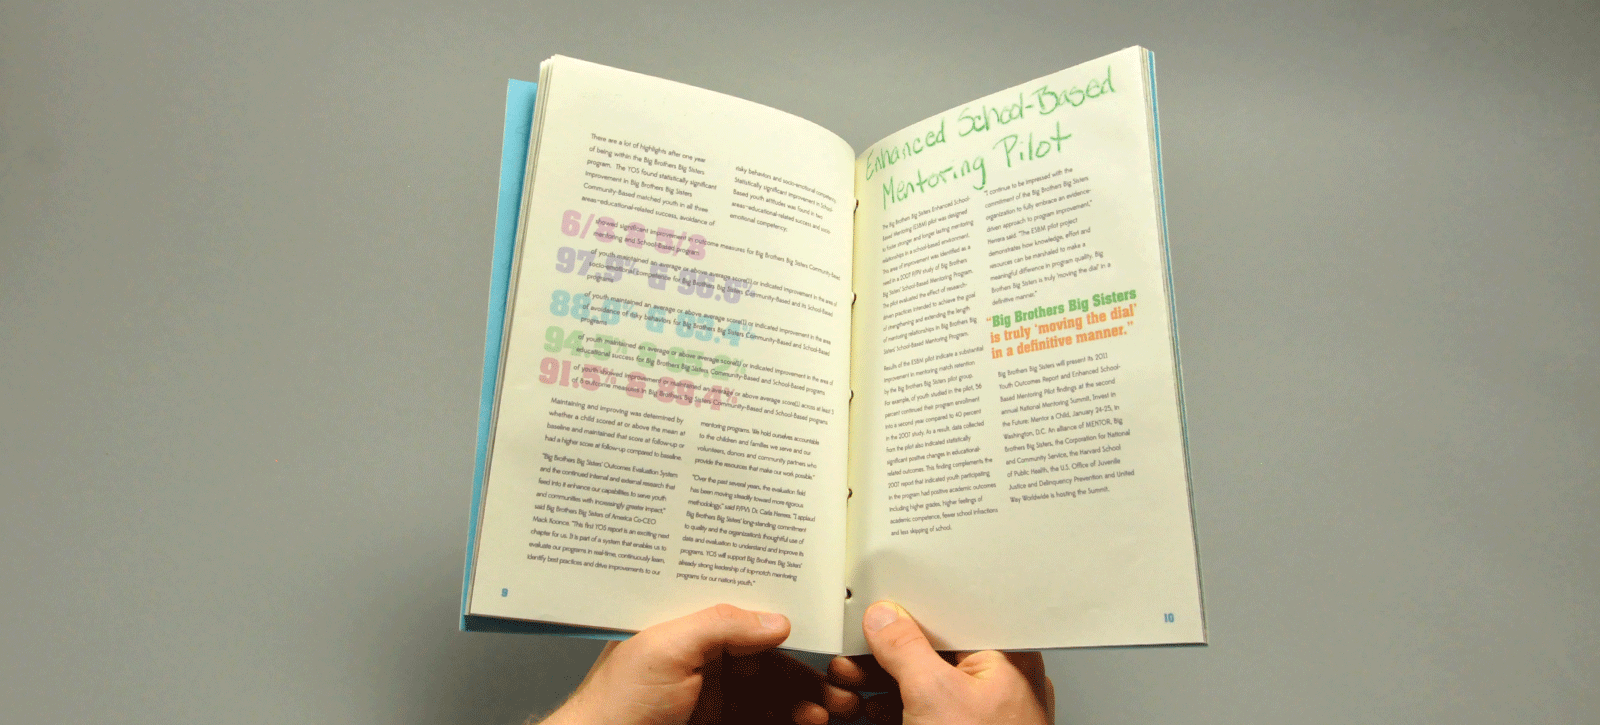 There are a lot of highlights after one year
of being within the Big Brothers Big Sisters
program. The YOS found statistically significant
improvement in Big Brothers Big Sisters
Community-Based matched youth in all three
areas–educational-related success, avoidance of
risky behaviors and socio-emotional competency.
Statistically significant improvement in School-
Based youth attitudes was found in two
areas–educational-related success and socio-
emotional competency.
6/8 & 5/8
showed significant improvement in outcome measures for Big Brothers Big Sisters Community-Based
mentoring and School-Based program
97.9% & 96.6%
of youth maintained an average or above average score(1) or indicated improvement in the area of
socio-emotional competence for Big Brothers Big Sisters Community-Based and its School-Based
programs
of youth maintained an average or above average score(1) or indicated improvement in the area
avoidance of risky behaviors for Big Brothers Big Sisters Community-Based and School-Based
programs
of youth maintained an average or above average score(1) or indicated improvement in the area of
educational success for Big Brothers Big Sisters Community-Based and School-Based programs
of youth showed improvement or maintained an average or above average score(1) across at least 5
of 8 outcome measures in Big Brothers Big Sisters Community-Based and School-Based programs
Maintaining and improving was determined by
whether a child scored at or above the mean at
baseline and maintained that score at follow-up or
had a higher score at follow-up compared to baseline.
"Big Brothers Big Sisters' Outcomes Evaluation System
and the continued internal and external research that
feed into it enhance our capabilities to serve youth
and communities with increasingly greater impact,"
said Big Brothers Big Sisters of America Co-CEO
Mack Koonce. "This first YOS report is an exciting next
chapter for us. It is part of a system that enables us to
evaluate our programs in real-time, continuously learn,
identify best practices and drive improvements to our
mentoring programs. We hold ourselves accountable
to the children and families we serve and our
volunteers, donors and community partners who
provide the resources that make our work possible."
"Over the past several years, the evaluation field
has been moving steadily toward more rigorous
methodology," said P/PV's Dr. Carla Herrera. "I applaud
Big Brothers Big Sisters' long-standing commitment
to quality and the organization's thoughtful use of
data and evaluation to understand and improve its
programs. YOS will support Big Brothers Big Sisters'
already strong leadership of top-notch mentoring
programs for our nation's youth."
9
Enhanced School-Based
Mentoring Pilot
The Big Brothers Big Sisters Enhanced School-
Based Mentoring (ESBM) pilot was designed
to foster stronger and longer lasting mentoring
relationships in a school-based environment.
This area of improvement was identified as a
need in a 2007 P/PV study of Big Brothers
Big Sisters' School-Based Mentoring Program.
The pilot evaluated the effect of research-
driven practices intended to achieve the goal
of strengthening and extending the length
of mentoring relationships in Big Brothers Big
Sisters' School-Based Mentoring Program.
Results of the ESBM pilot indicate a substantial
improvement in mentoring match retention
by the Big Brothers Big Sisters pilot group.
For example, of youth studied in the pilot, 56
percent continued their program enrollment
into a second year compared to 40 percent
in the 2007 study. As a result, data collected
from the pilot also indicated statistically
significant positive changes in educational-
related outcomes. This finding complements the
2007 report that indicated youth participating
in the program had positive academic outcomes
including higher grades, higher feelings of
academic competence, fewer school infractions
and less skipping of school.
"I continue to be impressed with the
commitment of the Big Brothers Big Sisters
organization to fully embrace an evidence-
driven approach to program improvement,"
Herrera said. "The ESBM pilot project
demonstrates how knowledge, effort and
resources can be marshaled to make a
meaningful difference in program quality. Big
Brothers Big Sisters is truly 'moving the dial' in a
definitive manner."
"Big Brothers Big Sisters
is truly 'moving the dial'
in a definitive manner."
Big Brothers Big Sisters will present its 2011
Youth Outcomes Report and Enhanced School-
Based Mentoring Pilot findings at the second
annual National Mentoring Summit, Invest in
the Future: Mentor a Child, January 24-25, in
Washington, D.C. An alliance of MENTOR, Big
Brothers Big Sisters, the Corporation for National
and Community Service, the Harvard School
of Public Health, the U.S. Office of Juvenile
Justice and Delinquency Prevention and United
Way Worldwide is hosting the Summit.
10